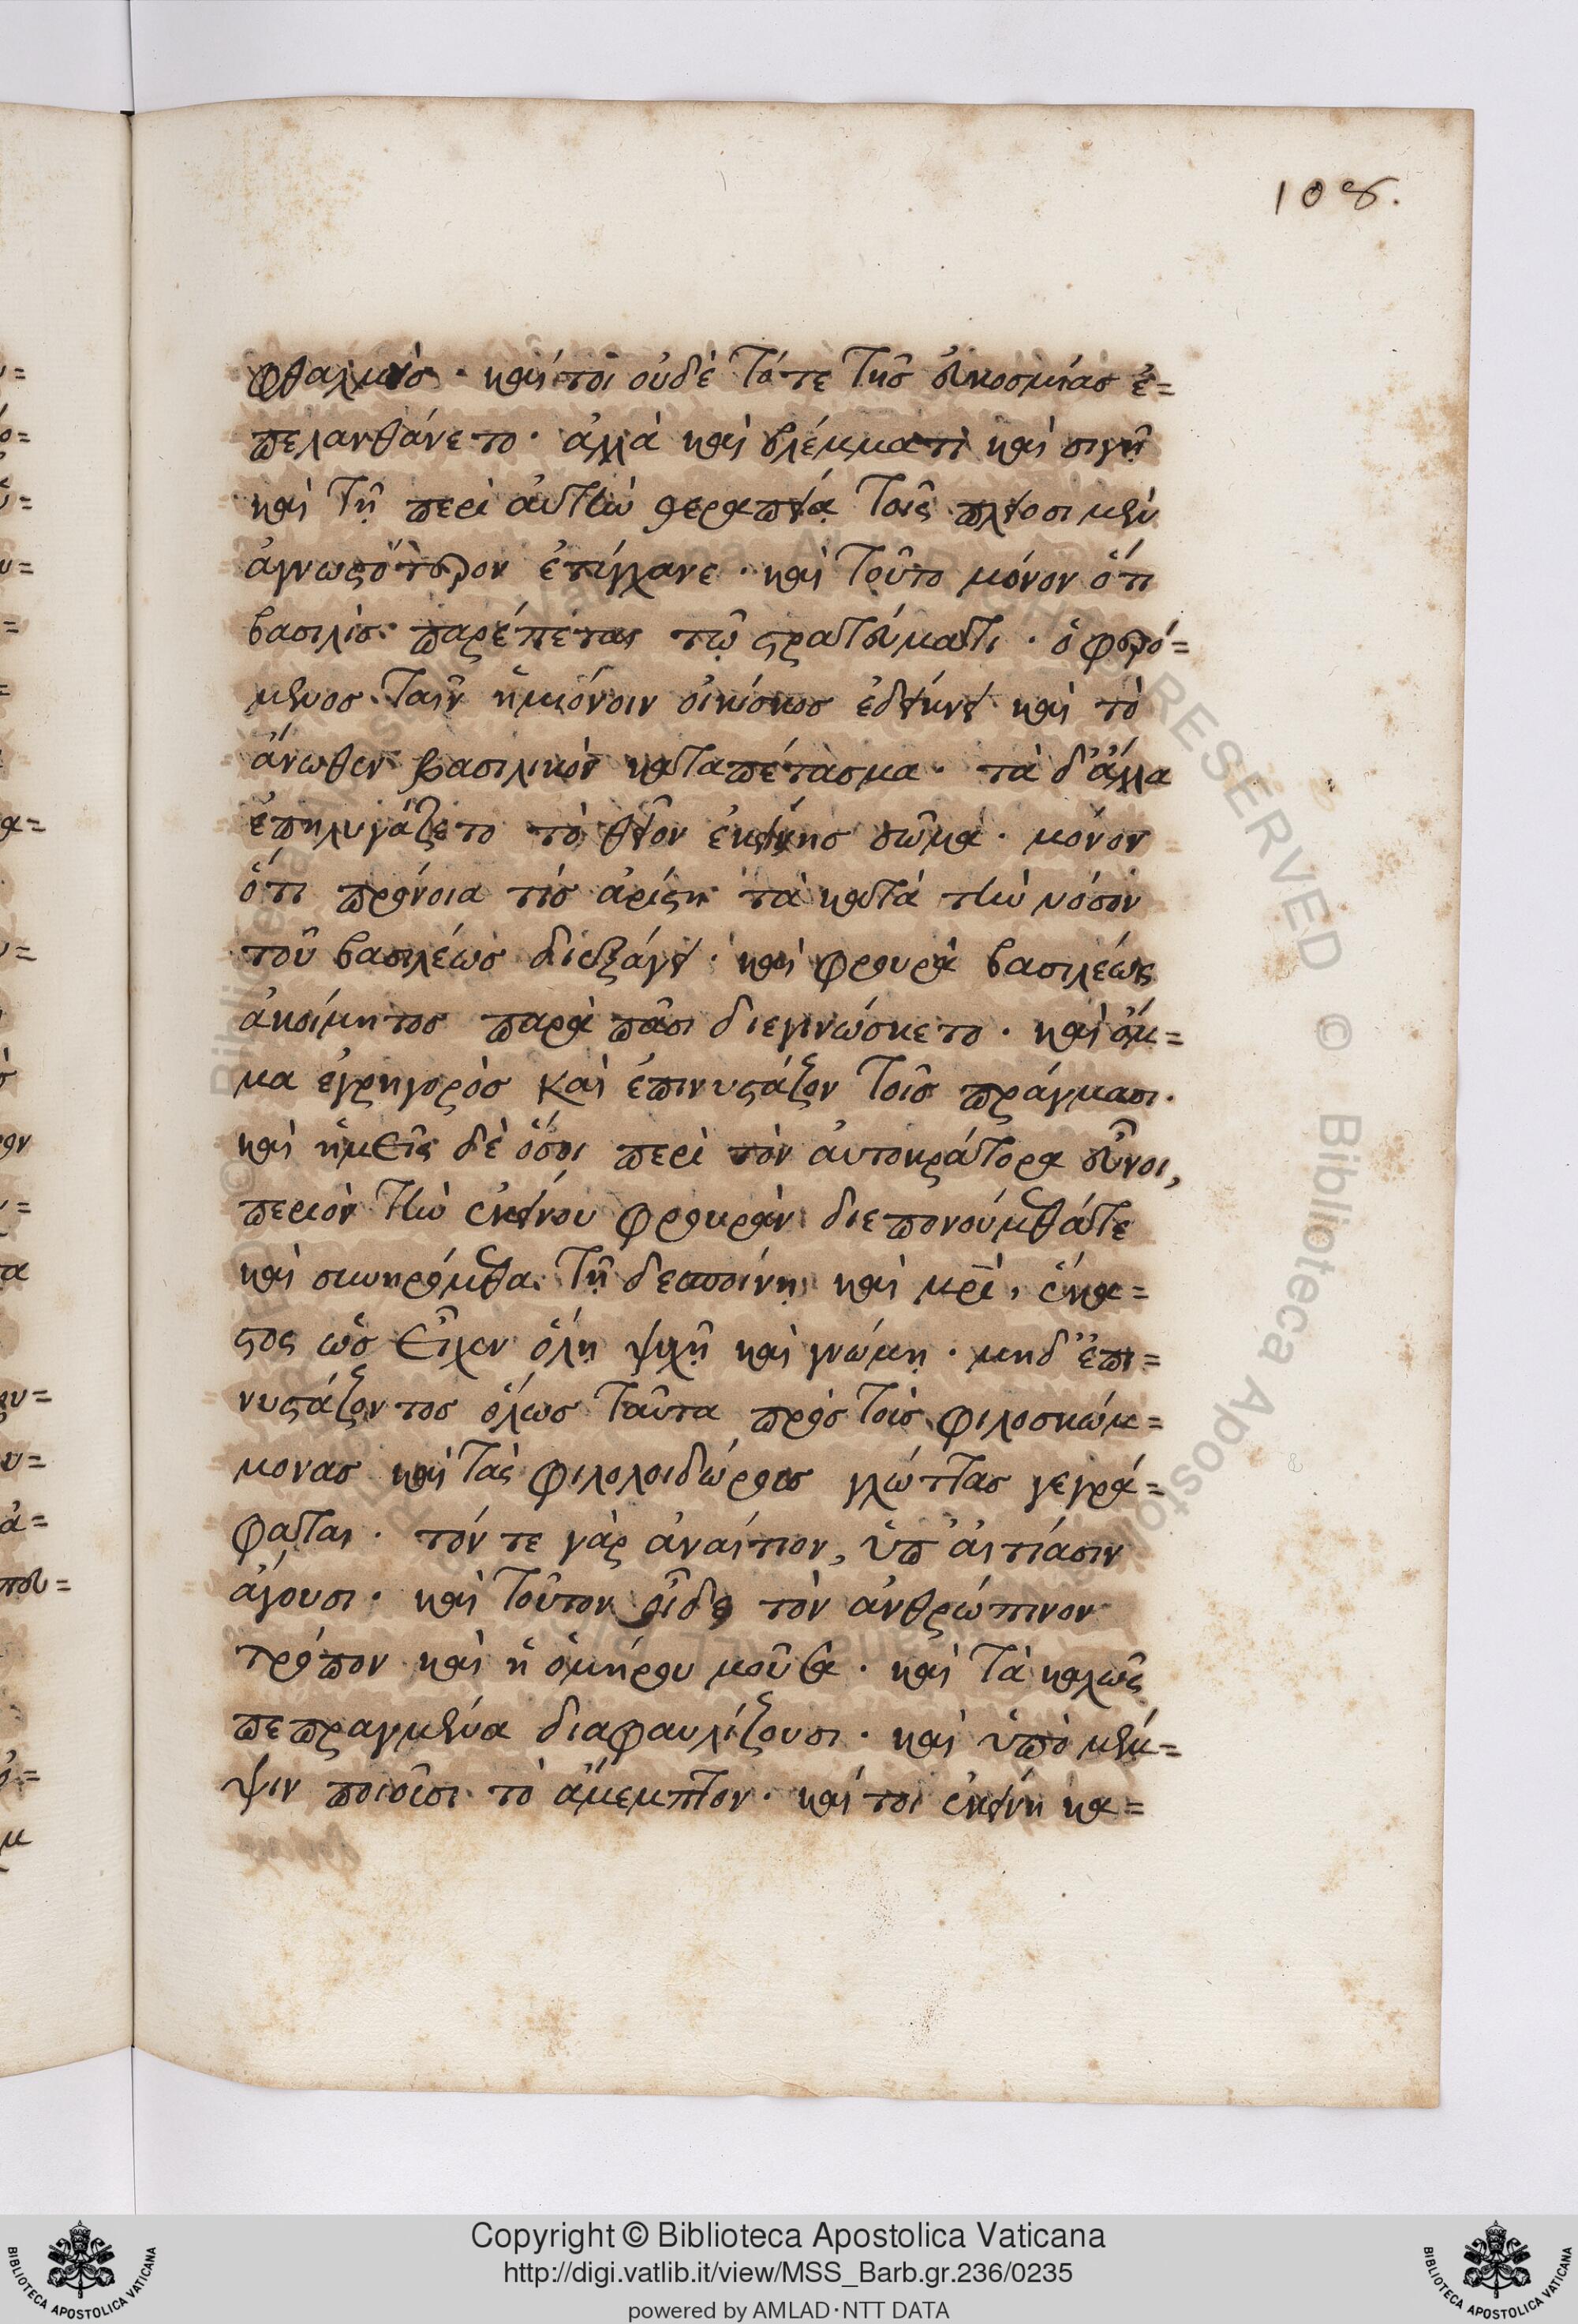 108.
φθαλμὸς · καίτοι οὐδὲ τότε τῆς εὐκοσμίας ἐ=
πελανθάνετο · ἀλλὰ καὶ βλέμματι καὶ σιγῇ
καὶ τῇ περὶ αὐτὴν θεραπείᾳ τοῖς πλείοσι μὲν
ἀγνωστότερον ἐτύγχανε · καὶ τοῦτο μόνον ὅτι
βασιλὶς παρέπεται τῷ στρατεύματι · ὁ φερό=
μενος ταῖν ἡμιόνοιν οἰκίσκος ἐδείκνυ καὶ τὸ
ἄνωθεν βασιλικὸν καταπέτασμα · τὰ δ' ἄλλα
ἐπηλυγάζετο τὸ θεῖον ἐκείνης σῶμα · μόνον
ὅτι πρόνοια τίς ἀρίστη τὰ κατὰ τὴν νόσον
τοῦ βασιλέως διεξάγει · καὶ φρουρὰ βασιλέως
ἀκοίμητος παρὰ πᾶσι διεγινώσκετο · καὶ ὄμ=
μα ἐγρηγορὸς καὶ ἐπινυστάζον τοῖς πράγμασι ·
καὶ ἡμεῖς δὲ ὅσοι περὶ τὸν αὐτοκράτορα εὖνοι,
περιὸν τὴν ἐκείνου φρουρὰν διεπονούμεθά τε
καὶ συνῃρόμεθα τῇ δεσποίνῃ καὶ μρὶ, ἕκα=
στος ὡς εἶχεν ὅλῃ ψυχῇ καὶ γνώμῃ · μηδ' ἐπι=
νυστάζοντος ὅλως ταῦτα πρὸς τοὺς φιλοσκώμ=
μονας καὶ τὰς φιλολοιδώρους γλώττας γεγρά=
φαται · τόν τε γὰρ ἀναίτιον, ὑπ' αἰτίασιν
ἄγουσι · καὶ τοῦτον οἶδε τὸν ἀνθρώπινον
τρόπον καὶ ἡ ὁμήρου μοῦσα · καὶ τὰ καλῶς
πεπραγμένα διαφαυλίζουσι · καὶ ὑπὸ μέμ=
ψιν ποιοῦσι τὸ ἄμεμπτον · καί τοι ἐκείνη κα=
Copyright © Biblioteca Apostolica Vaticana
http://digi.vatlib.it/view/MSS_Barb.gr.236/0235
powered by AMLAD·NTT DATA
BIBLIOTECA APOSTOLICA VATICANA
BIBLIOTECA APOSTOLICA VATICANA